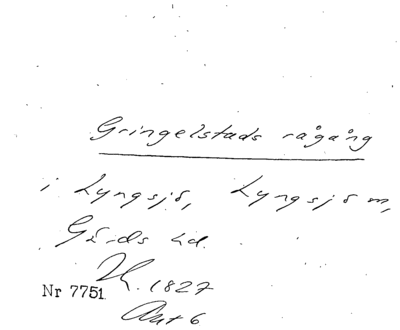 Gringelstads rågång
i Lyngsjö, Lyngsjö m,
Gärds hd.
1827
Nr 7751
Akt 6